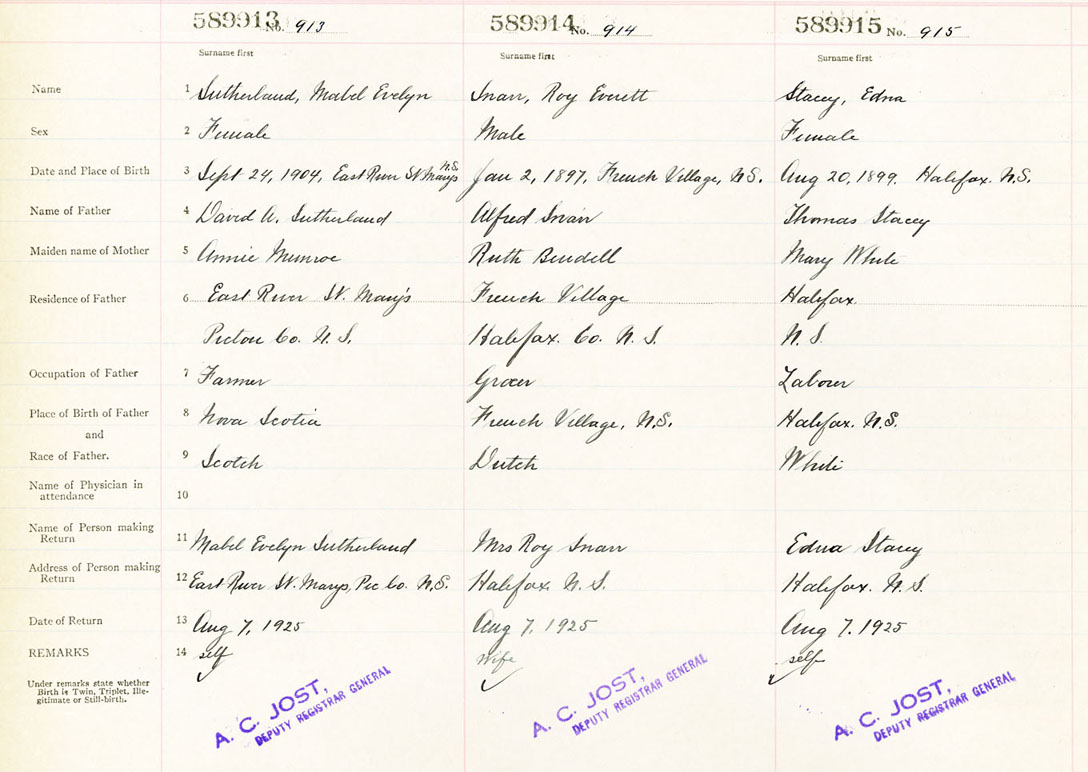 589913 No. 913 589914 No. 914 589915 No. 915
Surname first Surname first Surname first
Name 1 Sutherland, Mabel Evelyn Snair, Roy Everett Stacey, Edna
Sex 2 Female Male Female
Date and Place of Birth 3 Sept 24, 1904, East River St Marys N.S. Jan 2, 1897, French Village, N.S. Aug 20, 1899. Halifax. N.S.
Name of Father 4 David A. Sutherland Alfred Snair Thomas Stacey
Maiden name of Mother 5 Annie Munroe Ruth Bendell Mary White
Residence of Father 6 East River St. Mary's French Village Halifax.
Pictou Co. N.S. Halifax. Co. N.S. N.S.
Occupation of Father 7 Farmer Grocer Labour
Place of Birth of Father 8 Nova Scotia French Village, N.S. Halifax. N.S.
and
Race of Father. 9 Scotch Dutch White
Name of Physician in
attendance 10
Name of Person making
Return 11 Mabel Evelyn Sutherland Mrs Roy Snair Edna Stacey
Address of Person making
Return 12 East River St. Marys, Pic Co. N.S. Halifax. N.S. Halifax. N.S.
Date of Return 13 Aug 7, 1925 Aug 7, 1925 Aug 7. 1925
REMARKS 14 self wife self
Under remarks state whether
Birth is Twin, Triplet, Ille-
gitimate or Still-birth.
A. C. JOST, A. C. JOST, A. C. JOST,
DEPUTY REGISTRAR GENERAL DEPUTY REGISTRAR GENERAL DEPUTY REGISTRAR GENERAL